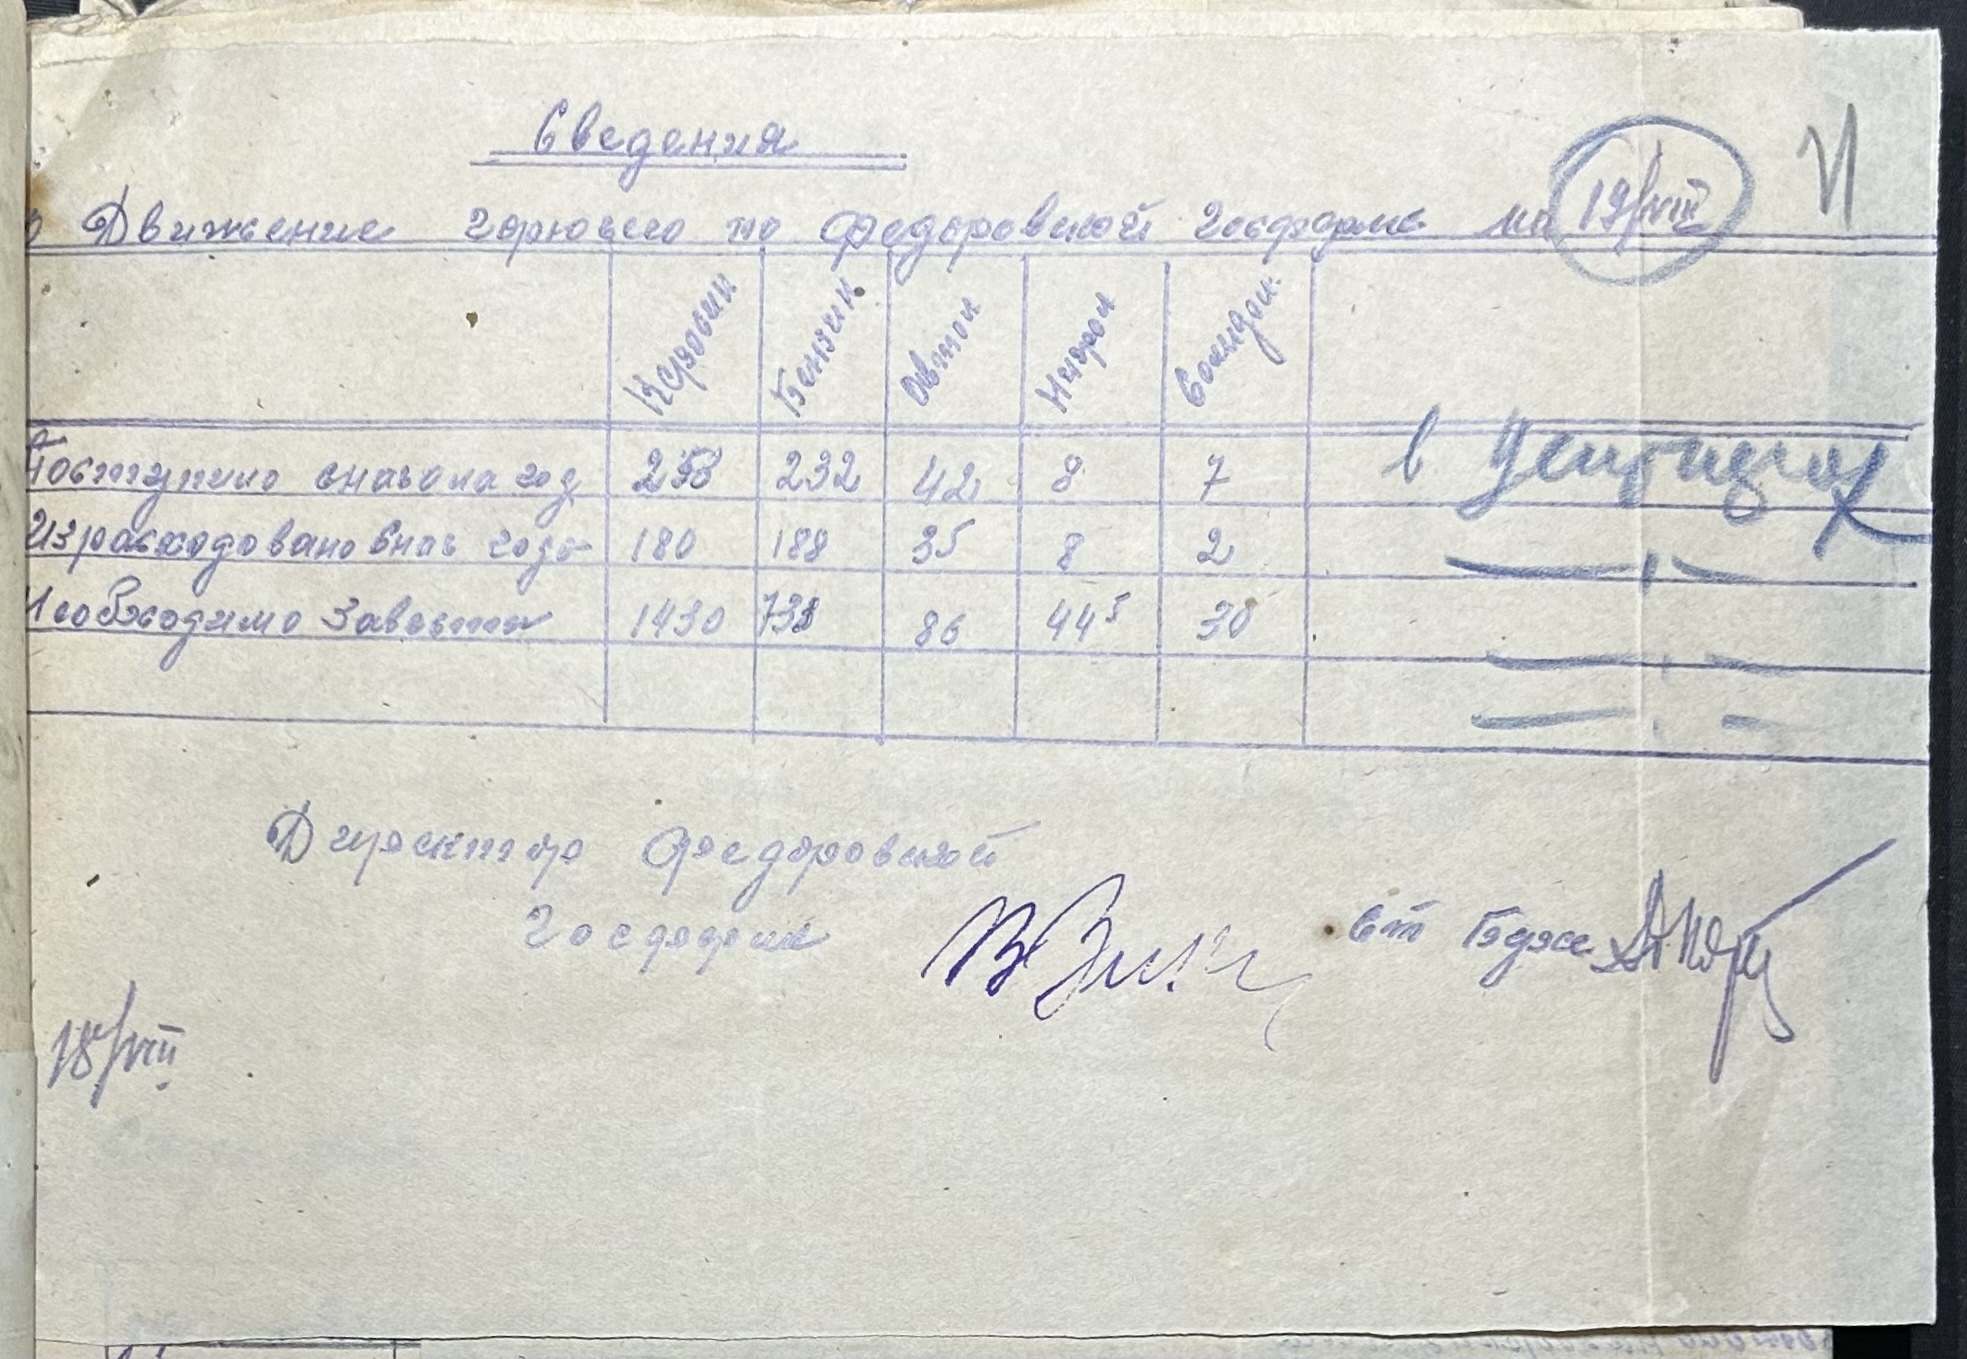 Сведения
о Движение горючего по федоровской Госферме на 19/VIII
Керосин Бензин Автол Нигрол Солидол.
Поступило сначала год 258 232 42 8 7 в центнерах
Израсходовано снач года 180 188 35 8 2 — " —
Необходимо Завести 1430 738 86 445 30 — " —
— " —
Директор федоровской
Госферми
Ст
18/VIII